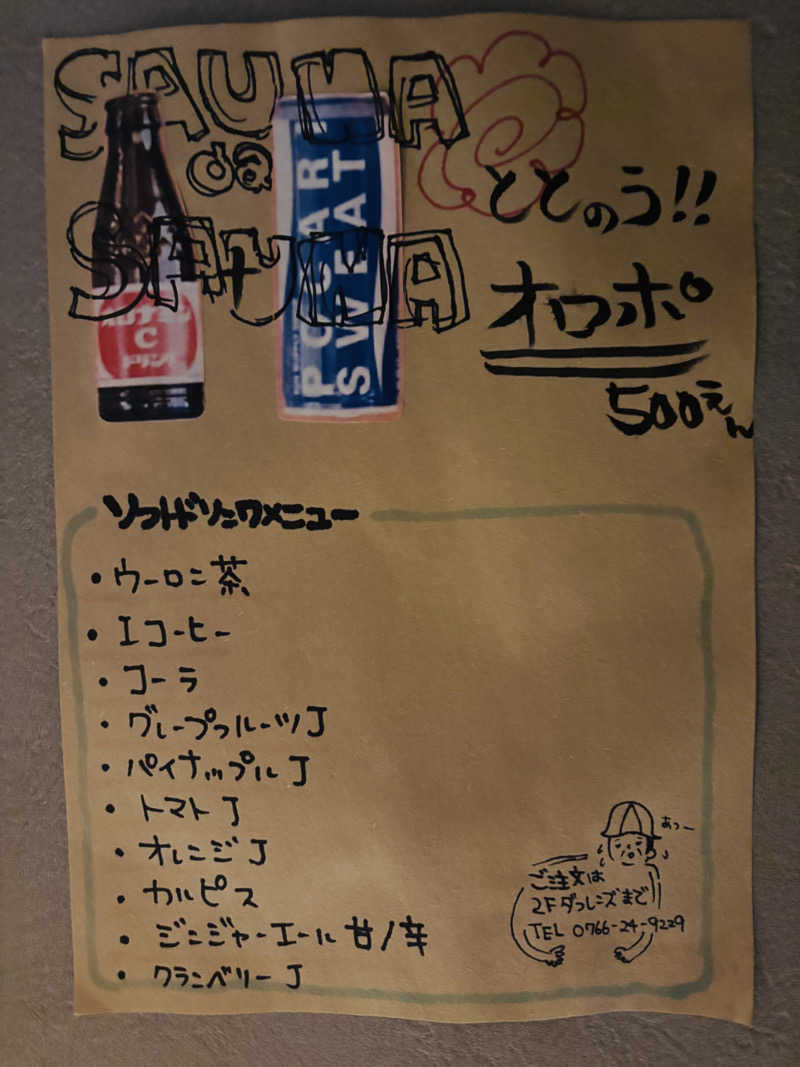 SAUNA
de
SAUNA
ととのう!!
オロポ
500えん
オロナミン
C
ドリンク
POCARI
SWEAT
ソフトドリンクメニュー
・ウーロン茶
・Iコーヒー
・コーラ
・グレープフルーツJ
・パイナップルJ
・トマトJ
・オレンジJ
・カルピス
・ジンジャーエール 甘/辛
・クランベリーJ
あつー
ご注文は
2Fダフレンズまで
TEL 0766-24-9229